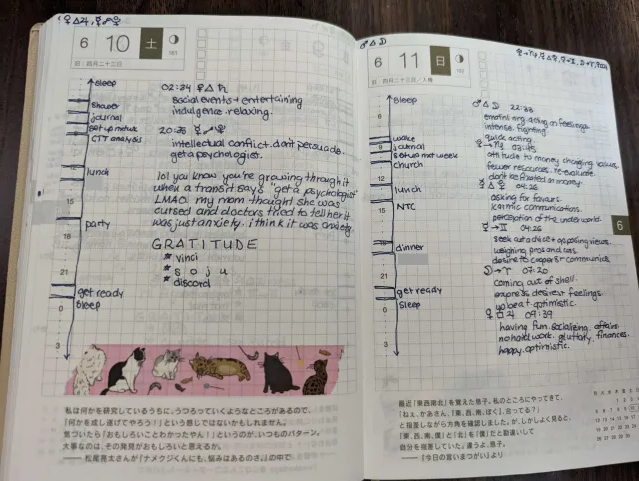 6 10 土
旧：四月二十二日
sleep
shower
journal
set up next wk
CTT analysis
lunch
party
get ready
sleep
6
9
12
15
18
21
0
3
02:34 ♀△♄
social events + entertaining
indulgence. relaxing.
20:35
intellectual conflict. don't persuade.
get a psychologies.
lol you know you're growing through it
when a transit says "get a psychologist"
LMAO. my mom thought she was
cursed and doctors tried to tell her it
was just anxiety. i think it was anxiety.
GRATITUDE
★ vinci
★ soju
★ discord
私は何かを研究しているうちに、うつろっていくようなところがあるので、
「何かを成し遂げてやろう！」という感じではないかもしれません。
気づいたら「おもしろいことわかったやん！」というのが、いつものパターン。
大事なのは、その発見がおもしろいと思えるか。
── 松尾亮太さんが『ナメクジくんにも、悩みはあるのさ。』の中で
♂△☽
6 11 日
旧：四月二十三日／入梅
6
sleep
wake
journal
set up next week
church
lunch
NTC
dinner
get ready
sleep
6
9
12
15
18
21
0
3
♂△☽ 22:38
emotional. acting on feelings.
intense. fighting.
quick acting.
attitude to money changing. values.
fewer resources. re-evaluate.
don't be fixated on money.
04:26
asking for favours.
karmic communications.
perception of the underworld.
☿→♊ 04:26
seek out advice + opposing views.
weighing pros and cons.
desire to cooperate + communicate.
☽→♈ 07:20
coming out of shell.
express desires + feelings.
upbeat. optimistic.
♀□♃ 09:39
having fun. socializing. affairs.
no hard work. gluttony. finances.
happy. optimistic.
最近「東西南北」を覚えた息子。私のところにやってきて、
「ねぇ、かあさん。『東、西、南、ほく』、言ってる？」
と指差しながら方角を確認しました。が、しかしよく見ると、
「東、西、南、僕」と「北」を「僕」だと勘違いして
自分を指差していた。違うよ、息子。
──『今日の言いまつがい』より